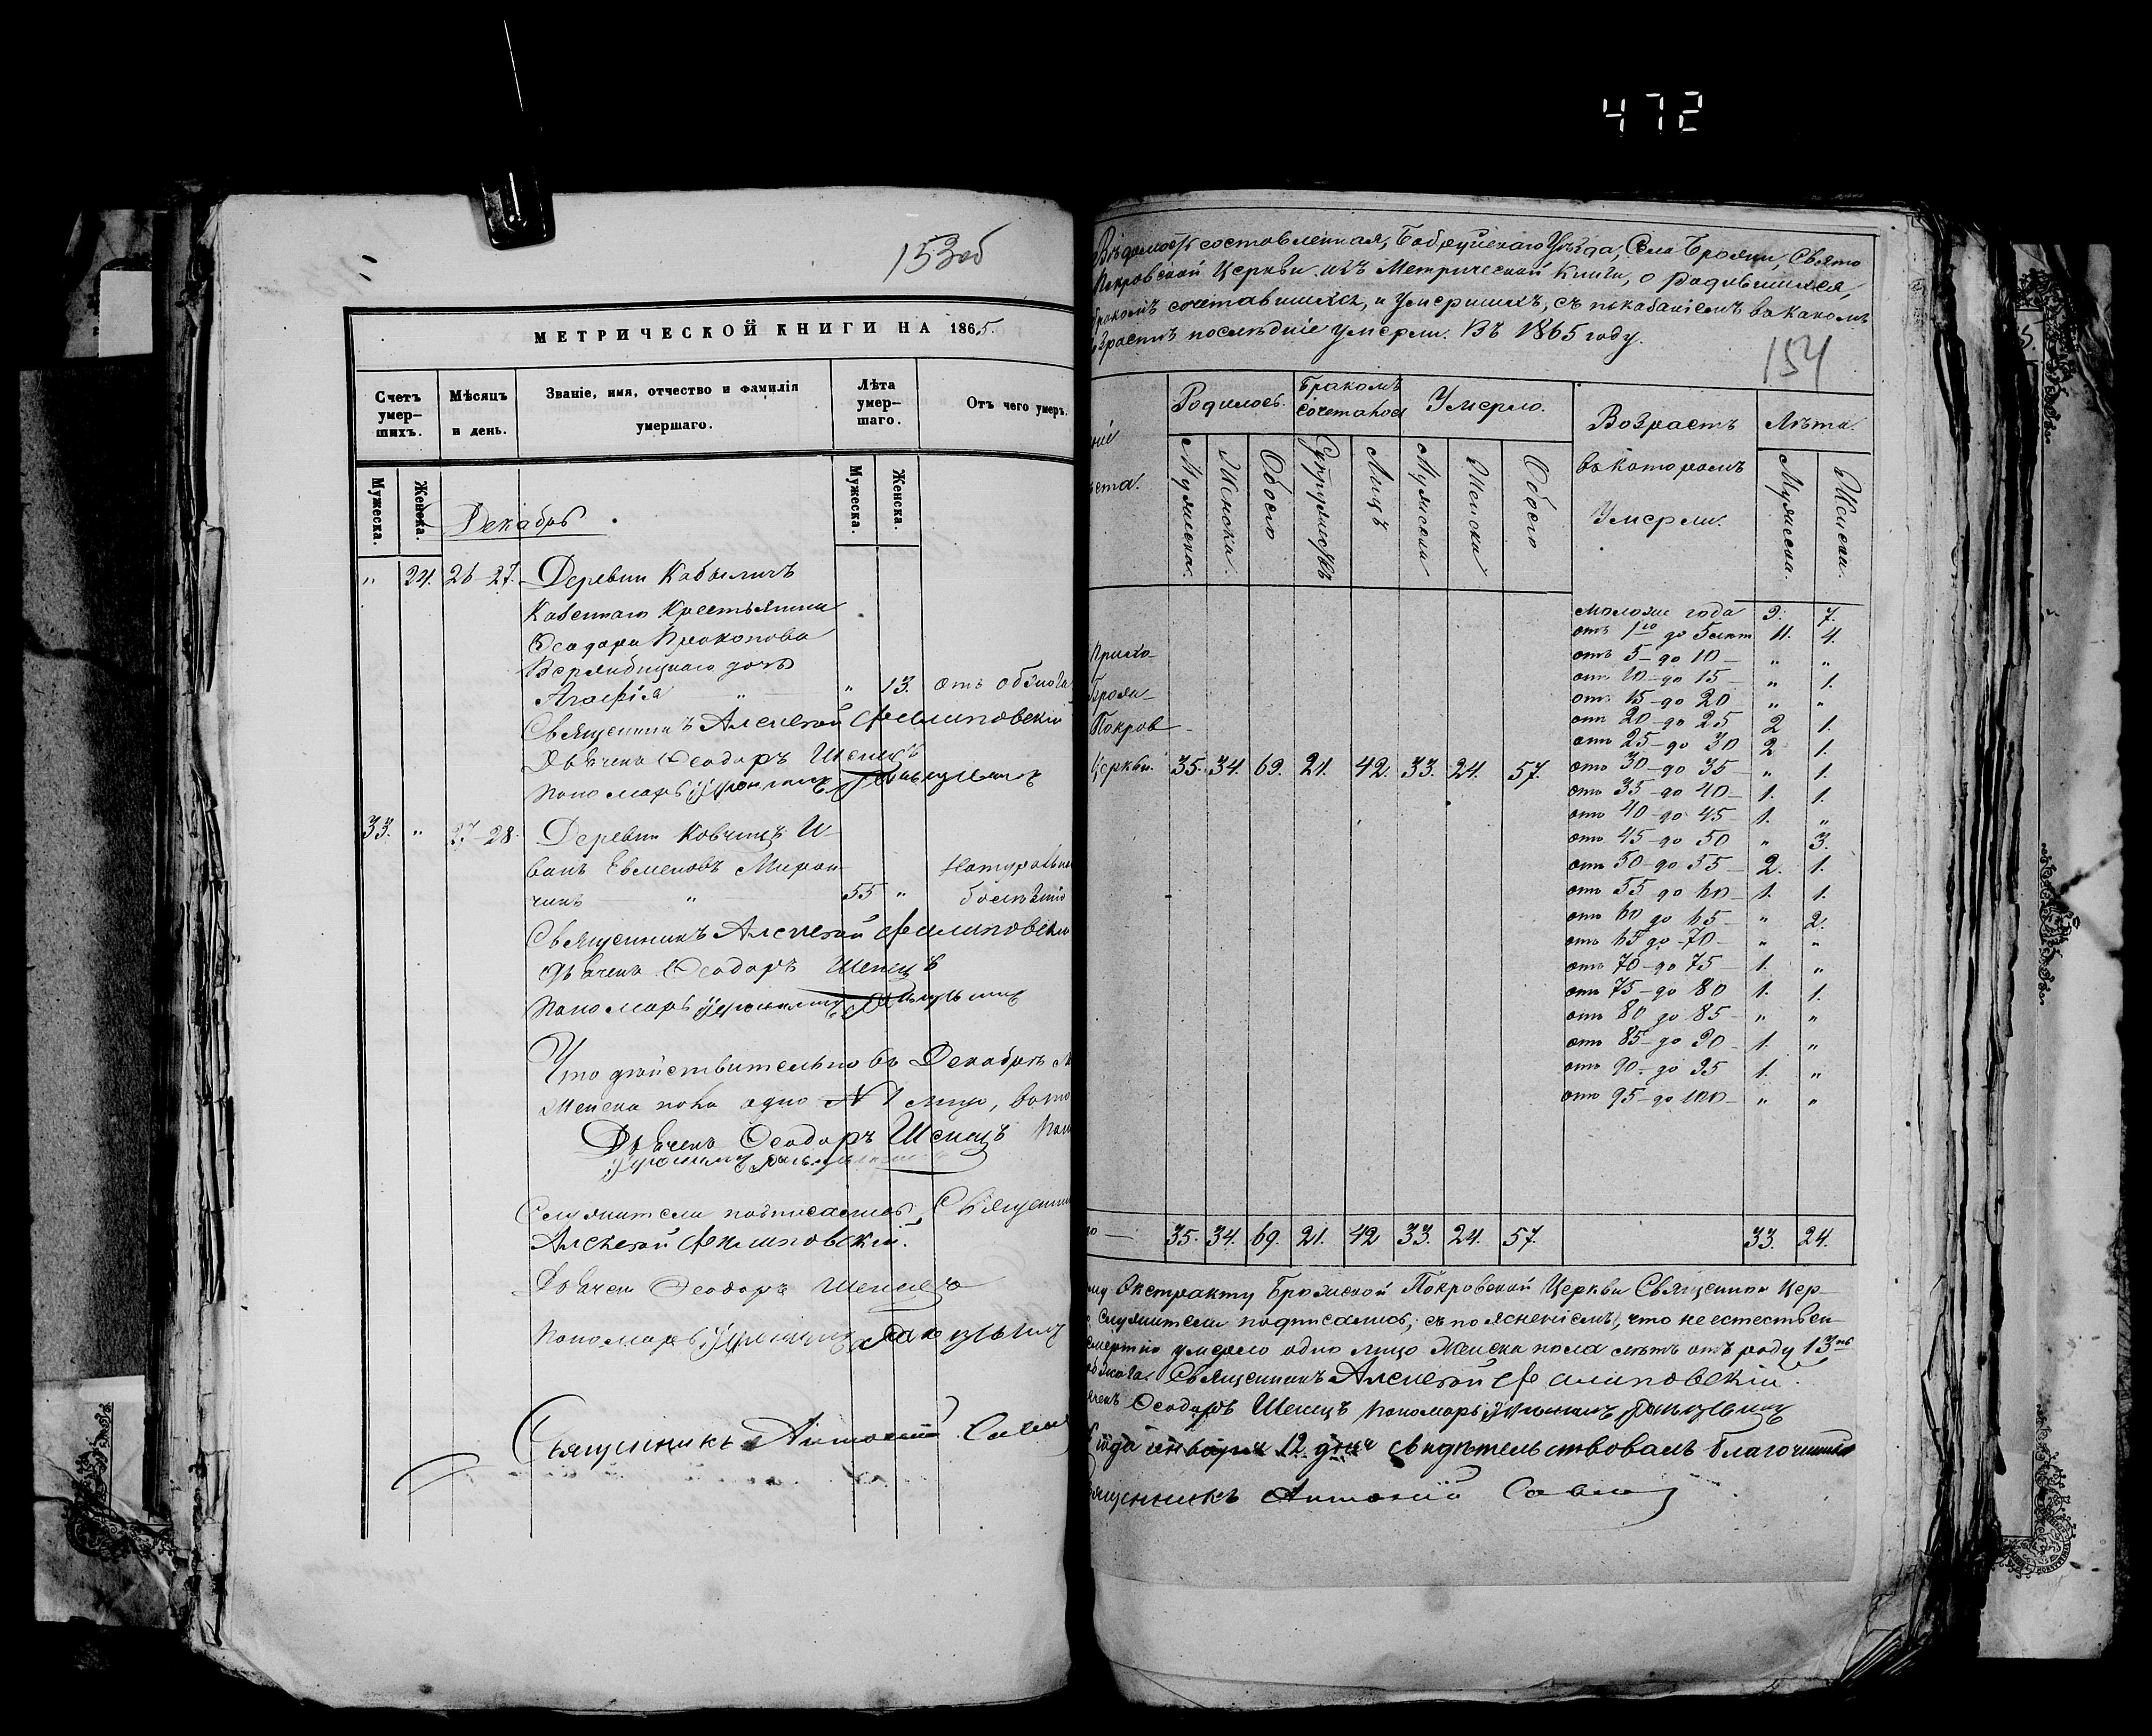 472
153 об
МЕТРИЧЕСКОЙ КНИГИ НА 1865
Счетъ умер-шихъ.
Мѣсяцъ и день.
Званіе, имя, отчество и фамилія умершаго.
Лѣта умер-шаго.
Отъ чего умеръ.
Мужеска.
Женска.
Мужеска.
Женска.
Декабрь
" 24. 26 27. Деревни Кабыличъ
Казеннаго Крестьянина
Ѳеодора Прокопова
дочь
Агафія " " 13. отъ обжога
Священникъ Алексѣй Филиповскій
Дьячекъ Ѳеодоръ Шепецъ
Пономарь
33. " 27 28. Деревни Ковчицъ И-
ванъ Евменовъ Мирон-
чикъ " 55 " Натуральн
болѣзнію
Священникъ Алексѣй Филиповскій
Дьячекъ Ѳеодоръ Шепецъ
Пономарь
Что дѣйствительно въ Декабрѣ М
Женска пола одно 1 лицо, въ то
Дьячекъ Ѳеодоръ Шепецъ Пон
Служители подписались, Священни
Алексѣй Филиповскій.
Дьячекъ Ѳеодоръ Шепецъ
Пономарь
Священникъ Антоній
Вѣдомость составленная, Бобруйскаго Уѣзда, Села Брожи, Свято
Покровской Церкви изъ Метрической Книги, о Родившихся,
бракомъ сочетавшихся, и Умершихъ, съ показаніемъ въ какомъ
возрастѣ послѣдніе умерли. Въ 1865 году.
154
Родилось.
Бракомъ сочеталось
Умерло.
Возрастъ въ которомъ Умерли.
Лѣта.
ніе
ѣста.
Мужеска.
Женска.
Обоего
Супружествъ
Лицъ
Мужеска
Женска
Обоего
Мужеска.
Женска.
Моложе года 9. 7.
отъ 1го до 5 лѣтъ 11. 4.
отъ 5 до 10 " "
отъ 10 до 15 " 1.
отъ 15 до 20 " "
отъ 20 до 25 2 1.
отъ 25 до 30 2. 1.
отъ 30 до 35 " 1.
отъ 35 до 40 1. 1.
отъ 40 до 45 1. "
отъ 45 до 50 " 3.
отъ 50 до 55 2. 1.
отъ 55 до 60 1. 1.
отъ 60 до 65 " 2.
отъ 65 до 70 " "
отъ 70 до 75 1. "
отъ 75 до 80 1. 1.
отъ 80 до 85 " "
отъ 85 до 90 1. "
отъ 90 до 95 1. "
отъ 95 до 100 " "
Прихо-
Брожи-
Покров-
Церкви. 35. 34. 69. 21. 42. 33. 24. 57.
го — 35. 34. 69. 21. 42 33. 24. 57. 33. 24.
му Экстракту Брожской Покровской Церкви Священно Цер-
служители подписались, съ поясненіемъ, что неестествен-
смертію умерло одно лицо Женска пола лѣтъ отъ роду 13ть
обжога. Священникъ Алексѣй Филиповскій.
ячекъ Ѳеодоръ Шепецъ Пономарь
года января 12 дня свидѣтельствовалъ благочинный
вященникъ Антоній